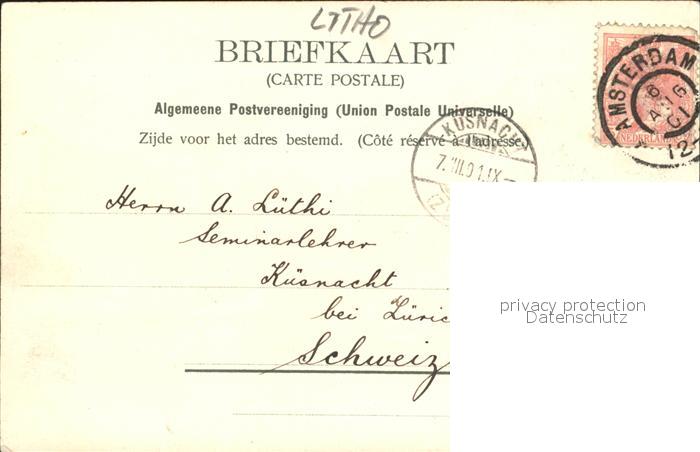 LITHO
BRIEFKAART
(CARTE POSTALE)
Algemeene Postvereeniging (Union Postale Universelle)
Zijde voor het adres bestemd. (Côté réservé à l'adresse.)
AMSTERDAM
NEDERLAND
KÜSNACHT
Herrn A. Lüthi
Seminarlehrer
Küsnacht
bei Züric
Schweiz
privacy protection
Datenschutz